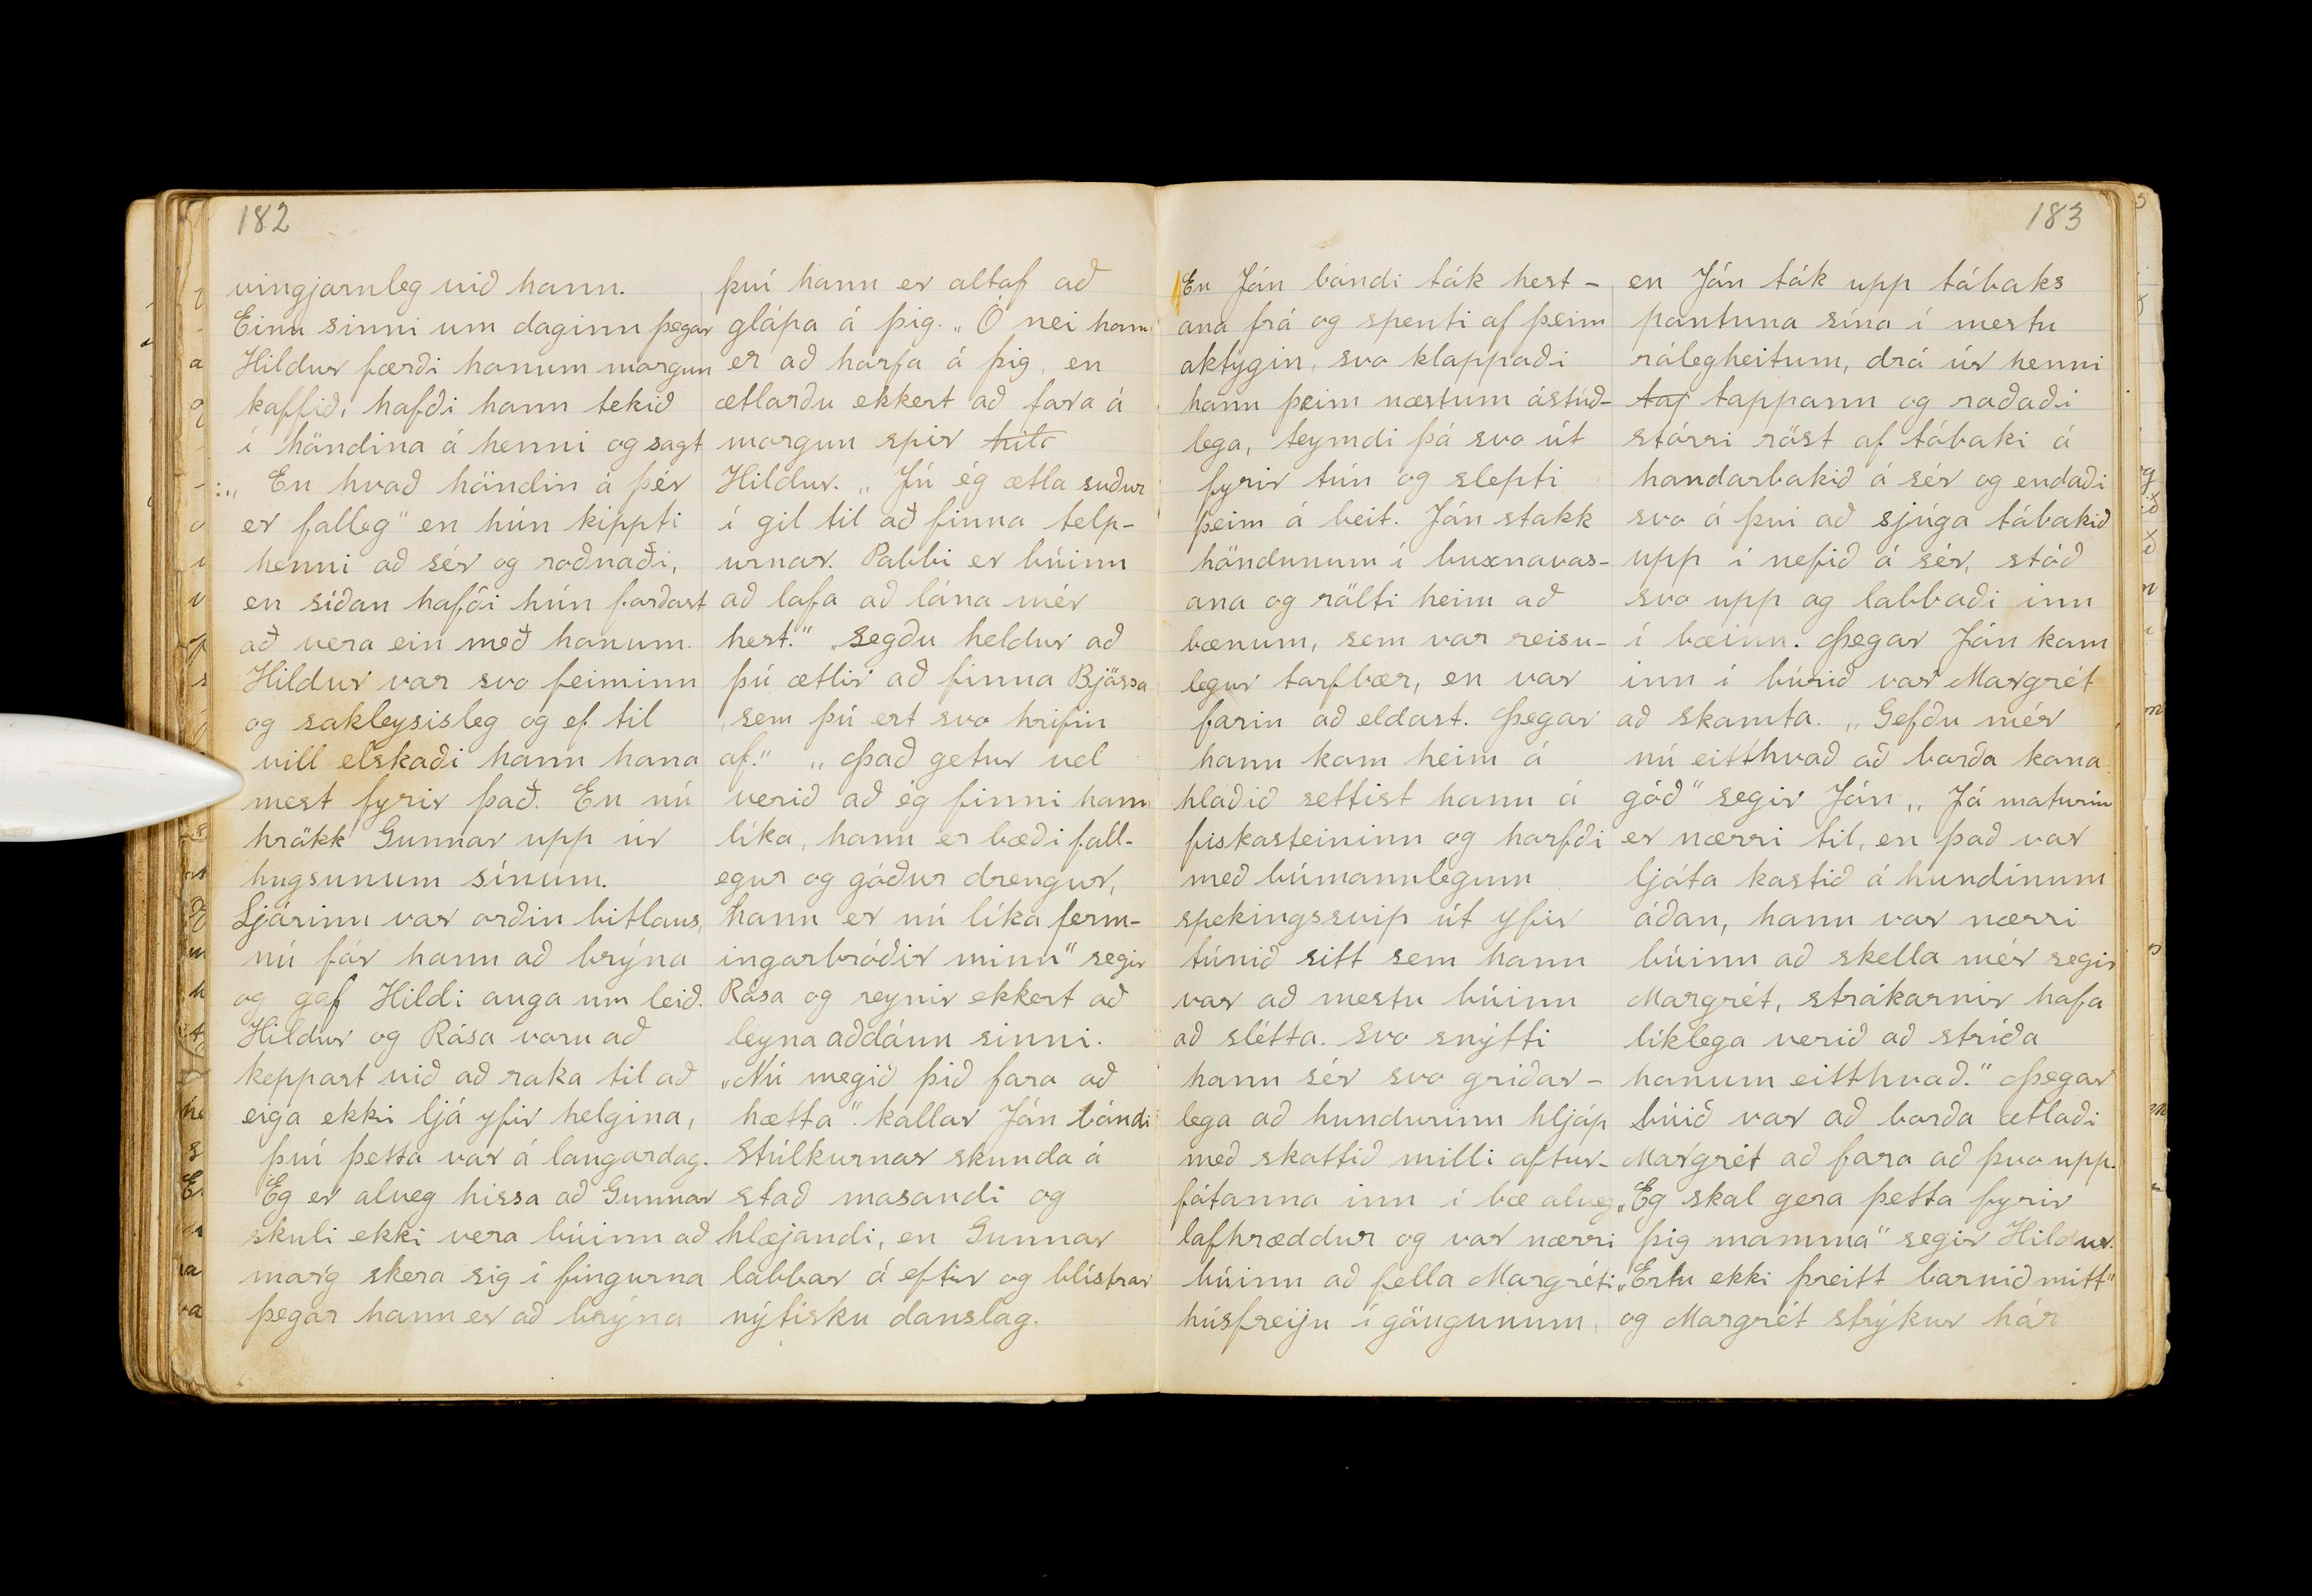 182
vingjarnleg við hann.
Einu sinni um daginn þegar
Hildur færði honum morgun
kaffið, hafði hann tekið
í höndina á henni og sagt
:„ En hvað höndin á þér
er falleg" en hún kippti
henni að sér og roðnaði,
en síðan hafði hún forðast
að vera ein með honum.
Hildur var svo feiminn
og sakleysisleg og ef til
vill elskaði hann hana
mest fyrir það. En nú
hrökk Gunnar upp úr
hugsunum sínum.
Ljárinn var orðin bitlaus,
nú fór hann að brýna
og gaf Hildi auga um leið.
Hildur og Rósa voru að
keppast við að raka til að
eiga ekki ljá yfir helgina,
því þetta var á laugardag.
Eg er alveg hissa að Gunnar
skuli ekki vera búinn að
marg skera sig í fingurna
þegar hann er að brýna
því hann er altaf að
glápa á þig. „Ó nei hann
er að horfa á þig, en
ætlarðu ekkert að fara á
morgun spir
Hildur. „ Jú ég ætla suður
í gil til að finna telp-
urnar. Pabbi er búinn
að lofa að lána mér
hest." „segðu heldur að
þú ætlir að finna Bjössa
sem þú ert svo hrifin
af." „ Það getur vel
verið að ég finni hann
líka, hann er bæði fall-
egur og góður drengur,
hann er nú líka ferm-
ingarbróðir minn" segir
Rósa og reynir ekkert að
leyna aðdáun sinni.
„Nú megið þið fara að
hætta". kallar Jón bóndi
Stúlkurnar skunda á
stað masandi og
hlæjandi, en Gunnar
labbar á eftir og blístrar
nýtísku danslag.
183
En Jón bóndi tók hest-
ana frá og spenti af þeim
aktygin, svo klappaði
hann þeim næstum ástúð-
lega, teymdi þá svo út
fyrir tún og slepti
þeim á beit. Jón stakk
höndunum í buxnavas-
ana og rölti heim að
bænum, sem var reisu-
legur torfbær, en var
farin að eldast. Þegar
hann kom heim á
hlaðið settist hann á
fiskasteininn og horfði
með búmannlegum
spekingssvip út yfir
túnið sitt sem hann
var að mestu búinn
að slétta. Svo snýtti
hann sér svo gríðar-
lega að hundurinn hljóp
með skottið milli aftur-
fótanna inn í bæ alveg
lafhræddur og var nærri
búinn að fella Margréti
húsfreiju í göngunum,
en Jón tók upp tóbaks
pontuna sína í mestu
rólegheitum, dró úr henni
taf tappann og raðaði
stórri röst af tóbaki á
handarbakið á sér og endaði
svo á því að sjúga tóbakið
upp í nefið á sér, stóð
svo upp og labbaði inn
í bæinn. Þegar Jón kom
inn í búrið var Margrét
að skamta. „Gefðu mér
nú eitthvað að borða kona
góð" segir Jón „ Já maturin
er nærri til, en það var
ljóta kastið á hundinum
áðan, hann var nærri
búinn að skella mér segir
Margrét, strákarnir hafa
líklega verið að stríða
honum eitthvað." Þegar
búið var að borða ætlaði
Margrét að fara að þvo upp.
„Eg skal gera þetta fyrir
þig mamma" segir Hildur.
„Ertu ekki þreitt barnið mitt"
og Margrét strýkur hár